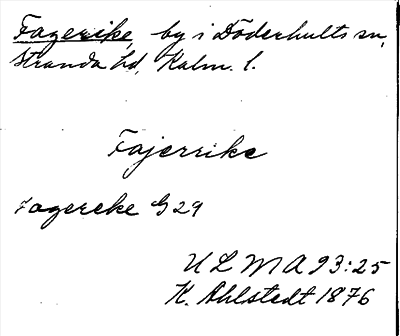 Fagerike, by i Döderhults sn,
Stranda hd, Kalm. l.
Fajerrike
Fagereke G 29
U L M A 93:25
K. Ahlstedt 1876